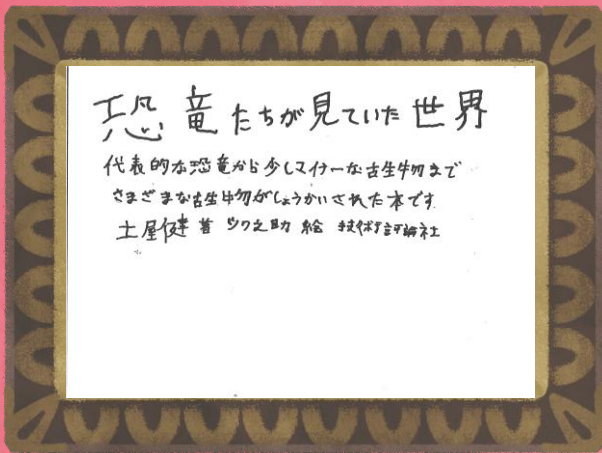 恐竜たちが見ていた世界
代表的な恐竜から少しマイナーな古生物まで
さまざまな古生物がしょうかいされた本です
土屋健 著 ツク之助 絵 技術評論社